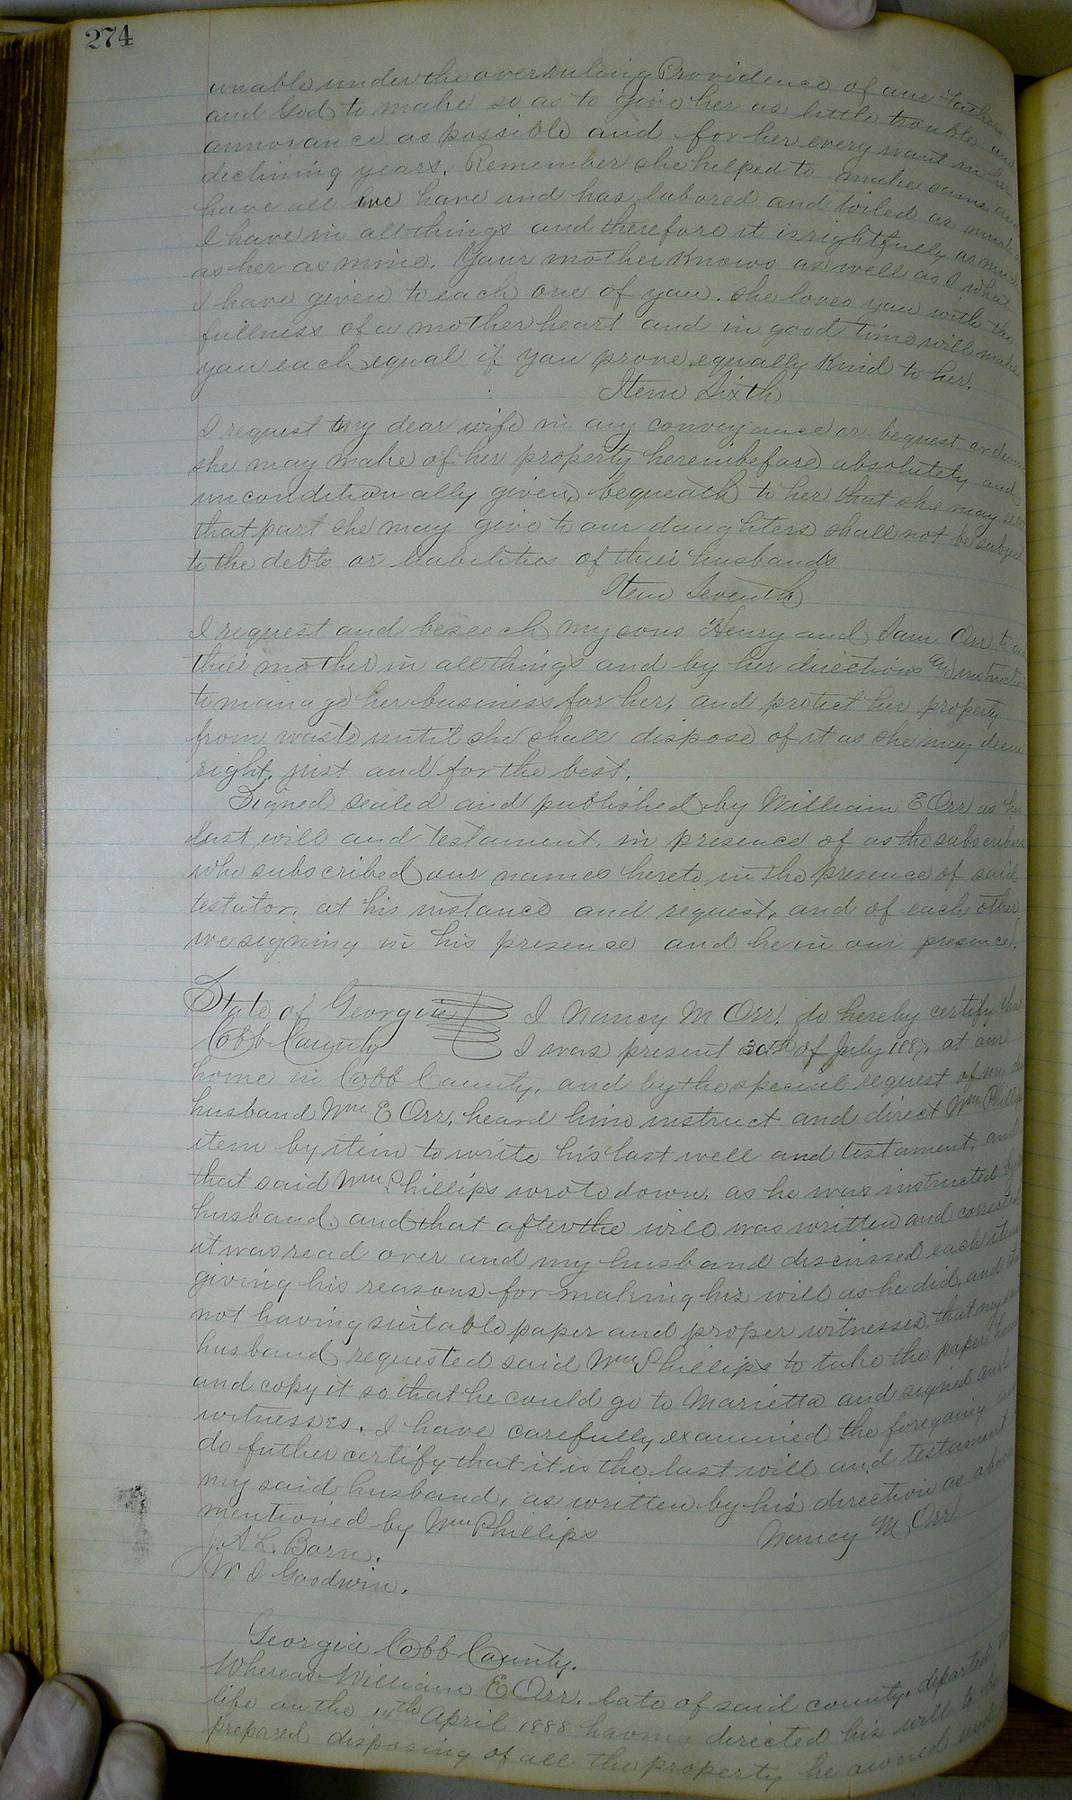 274
unable under the overruling Providence of our Father
and God to make so as to give her as little trouble and
annoyance as possible and for her every want in her
declining years. Remember she helped to make same and
have all we have and has labored and toiled as much
I have in all things and therefore it is rightfully as much
as her as mine. Your mother knows as well as I what
I have given to each one of you. She loves you with the
fullness of a mother heart and in good time will make
you each equal if you prove equally kind to her.
Item Sixth
I request my dear wife in any conveyance or bequest or
she may make of her property hereinbefore absolutely and
unconditionally given, bequeath to her that she may
that part she may give to our daughters shall not be subject
to the debts or liabilities of their husbands
Item Seventh
I request and beseech my sons Henry and Sam Orr to
their mother in all things and by her directions and instruction
to manage her business for her, and protect her property
from waste until she shall dispose of it as she may deem
right, just and for the best.
Signed sealed and published by William E Orr as his
last will and testament, in presence of us the subscribers
who subscribed our names hereto in the presence of said
testator, at his instance and request, and of each other
we signing in his presence and he in our presence.
State of Georgia I Nancy M Orr, do hereby certify that
Cobb County I was present 30th of July 1887, at our
home in Cobb County, and by the special request of my
husband Wm E Orr, heard him instruct and direct Wm Phillips
item by item to write his last well and testament, and
that said Wm Phillips wrote down, as he was instructed by
husband, and that after the will was written and corrected
it was read over and my husband discussed each item
giving his reasons for making his will as he did, and
not having suitable paper and proper witnesses, that my
husband requested said Wm Phillips to take the paper home
and copy it so that he could go to Marietta and signed and
witnesses. I have carefully examined the foregoing and
do futher certify that it is the last will and testament
my said husband, as written by his direction as above
mentioned by Wm Phillips Nancy M Orr
J. A L. Born.
W I Goodwin.
Georgia Cobb County.
Whereas William E Orr, late of said county, departed
life on the 14th April 1888 having directed his will to be
prepared disposing of all the property he owned and